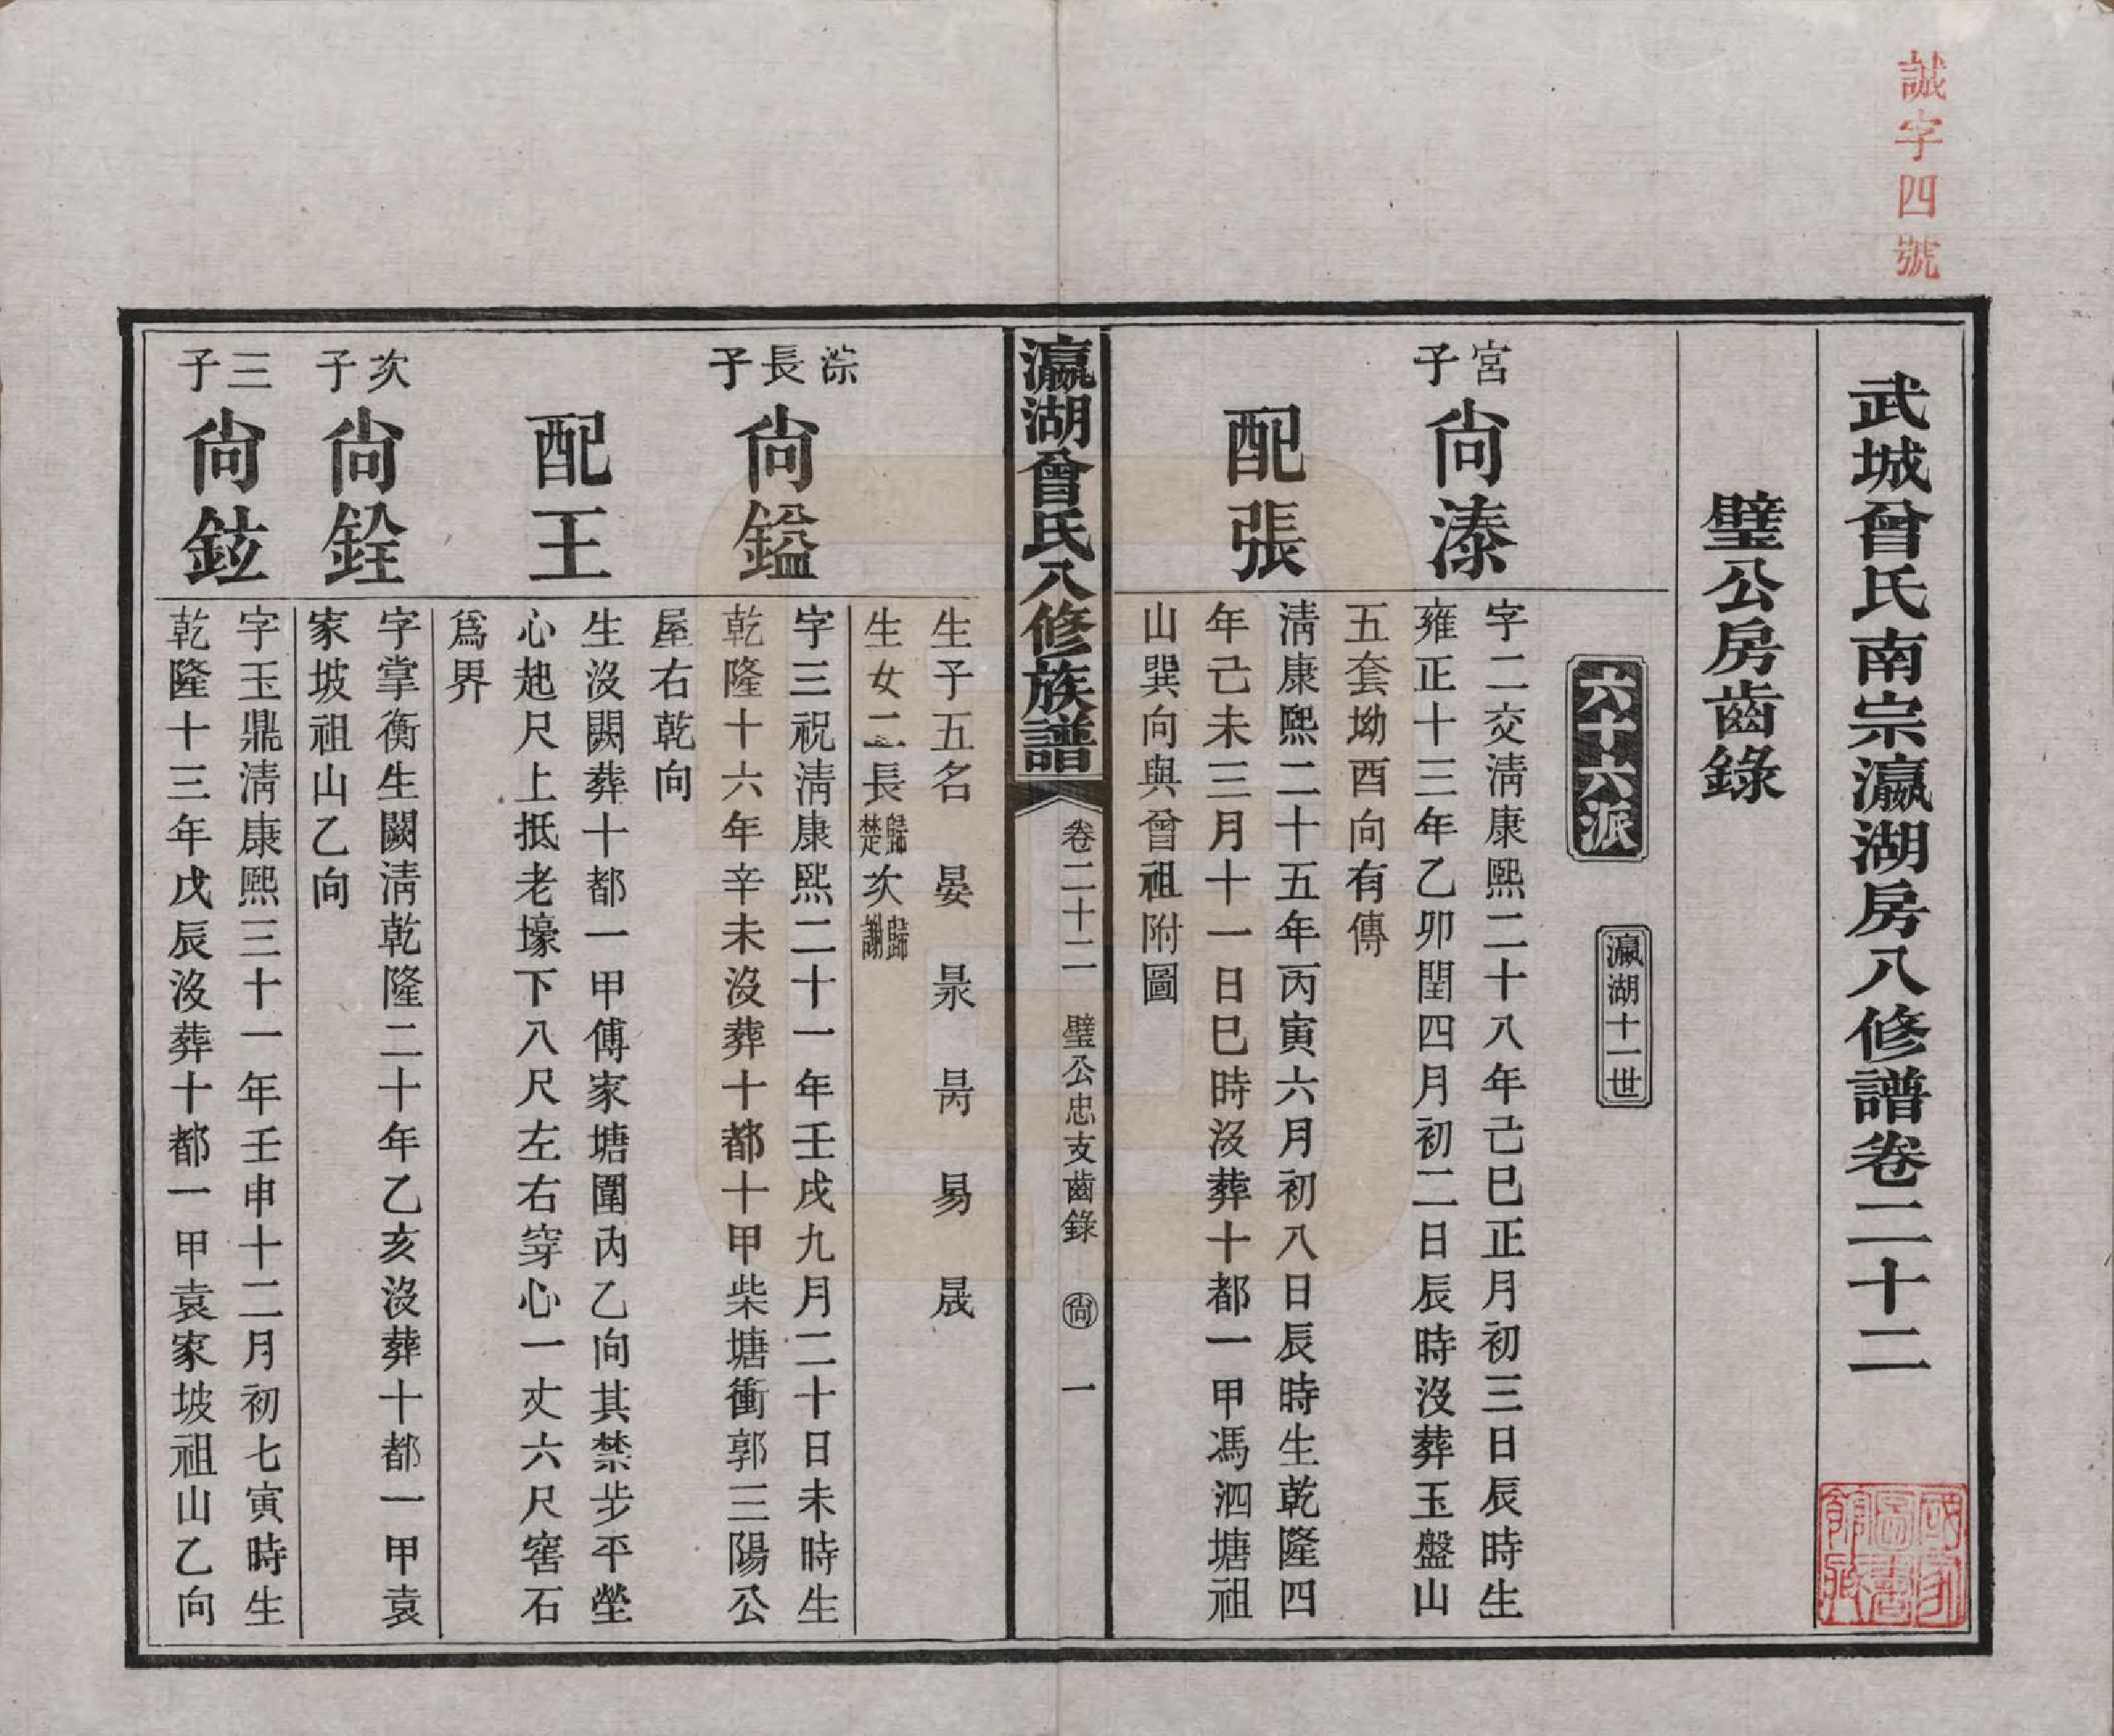 誠字四號
武城曾氏南宗瀛湖房八修譜卷二十二
璧公房齒錄
六十六派
瀛湖十一世
宮子
尚溙
字二交淸康熙二十八年己巳正月初三日辰時生
雍正十三年乙卯閏四月初二日辰時沒葬玉盤山
五套坳酉向有傳
配張
淸康熙二十五年丙寅六月初八日辰時生乾隆四
年己未三月十一日巳時沒葬十都一甲馮泗塘祖
山巽向與曾祖附圖
瀛湖曾氏八修族譜
卷二十二
璧公忠支齒錄
尚
一
生子五名 晏 㫧 昺 易 晟
生女二長歸楚次歸謝
淙長子
尚鎰
字三祝淸康熙二十一年壬戌九月二十日未時生
乾隆十六年辛未沒葬十都十甲柴塘衝郭三陽公
屋右乾向
配王
生沒闕葬十都一甲傅家塘圍內乙向其禁步平塋
心起尺上抵老壕下八尺左右穿心一丈六尺窖石
爲界
次子
尚銓
字掌衡生闕淸乾隆二十年乙亥沒葬十都一甲袁
家坡祖山乙向
三子
尚鉉
字玉鼎淸康熙三十一年壬申十二月初七寅時生
乾隆十三年戊辰沒葬十都一甲袁家坡祖山乙向
國家圖書館藏